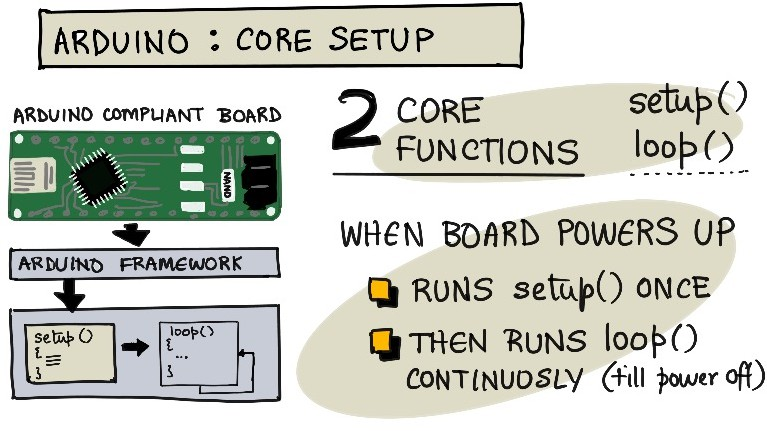 ARDUINO : CORE SETUP
ARDUINO COMPLIANT BOARD
NAND
ARDUINO FRAMEWORK
setup()
{
}
loop()
{
...
}
2 CORE
FUNCTIONS
setup()
loop()
WHEN BOARD POWERS UP
RUNS setup() ONCE
THEN RUNS loop()
CONTINUOSLY (till power off)